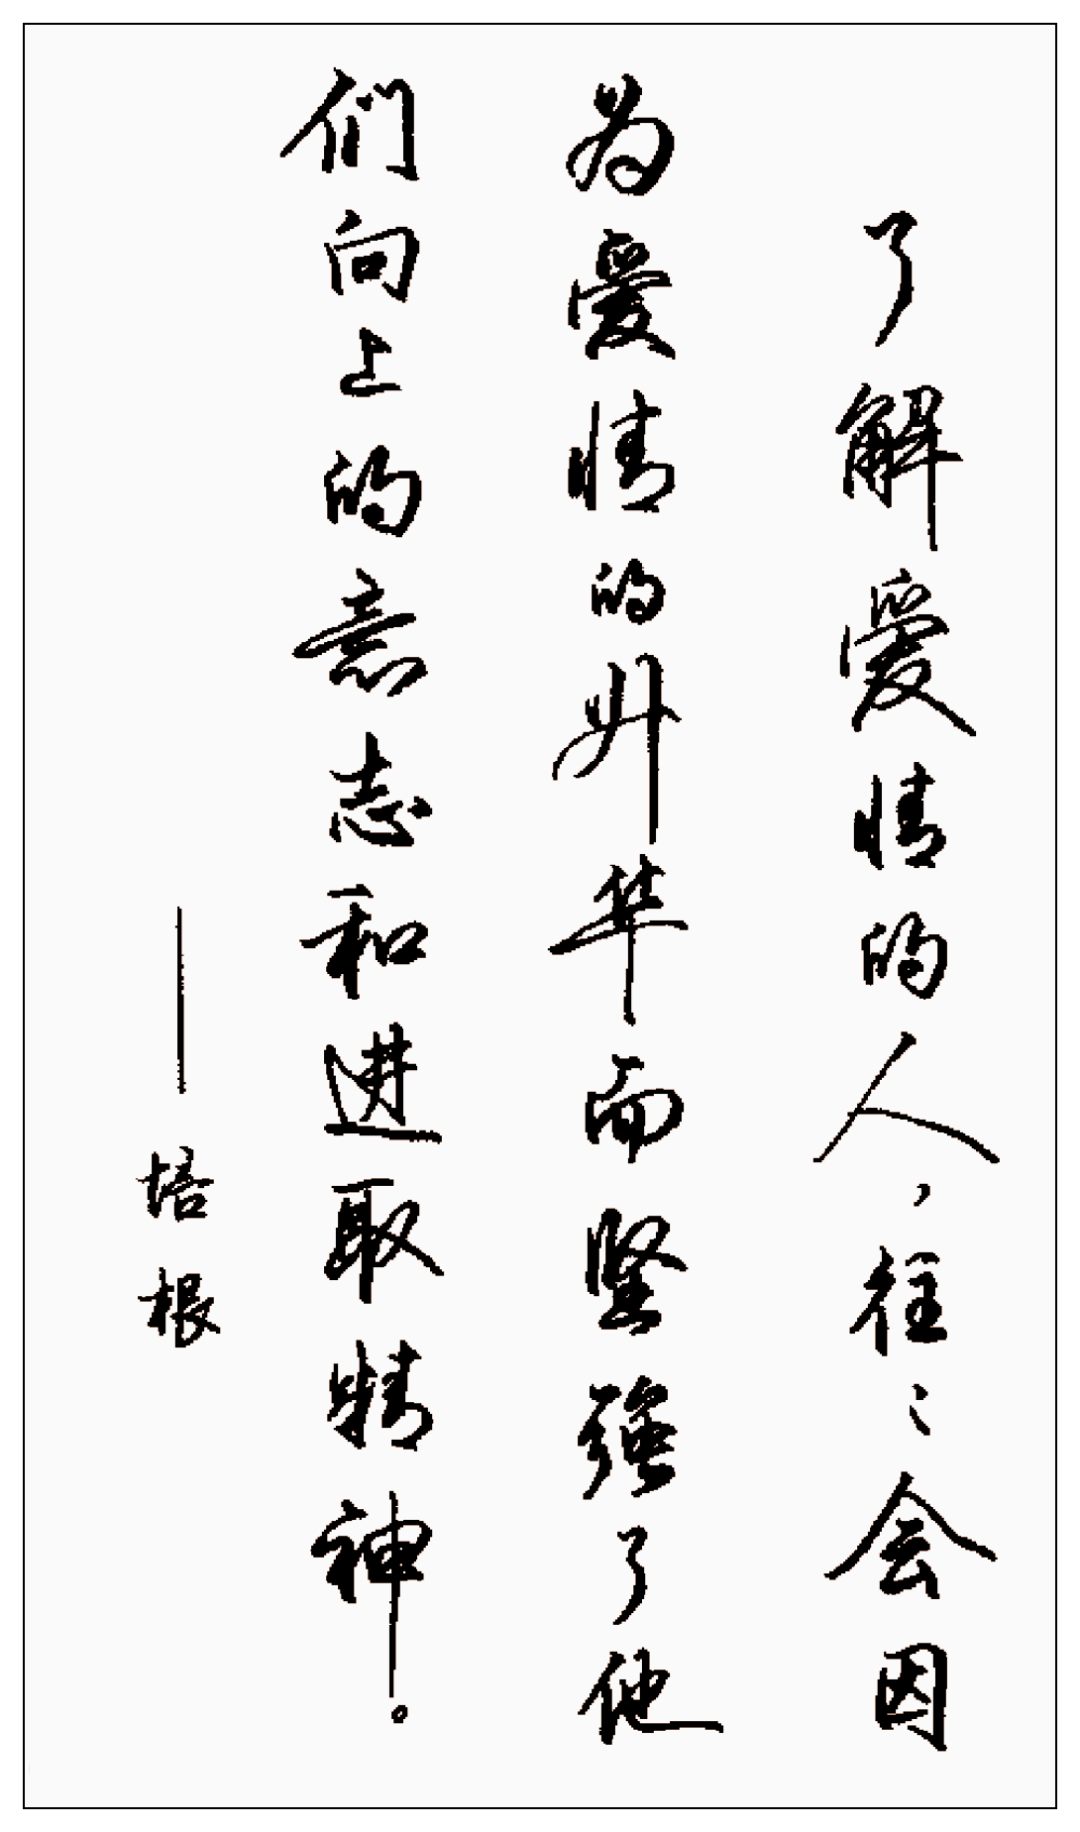 了解爱情的人，往々会因
为爱情的升华而坚强了他
们向上的意志和进取精神。
——培根